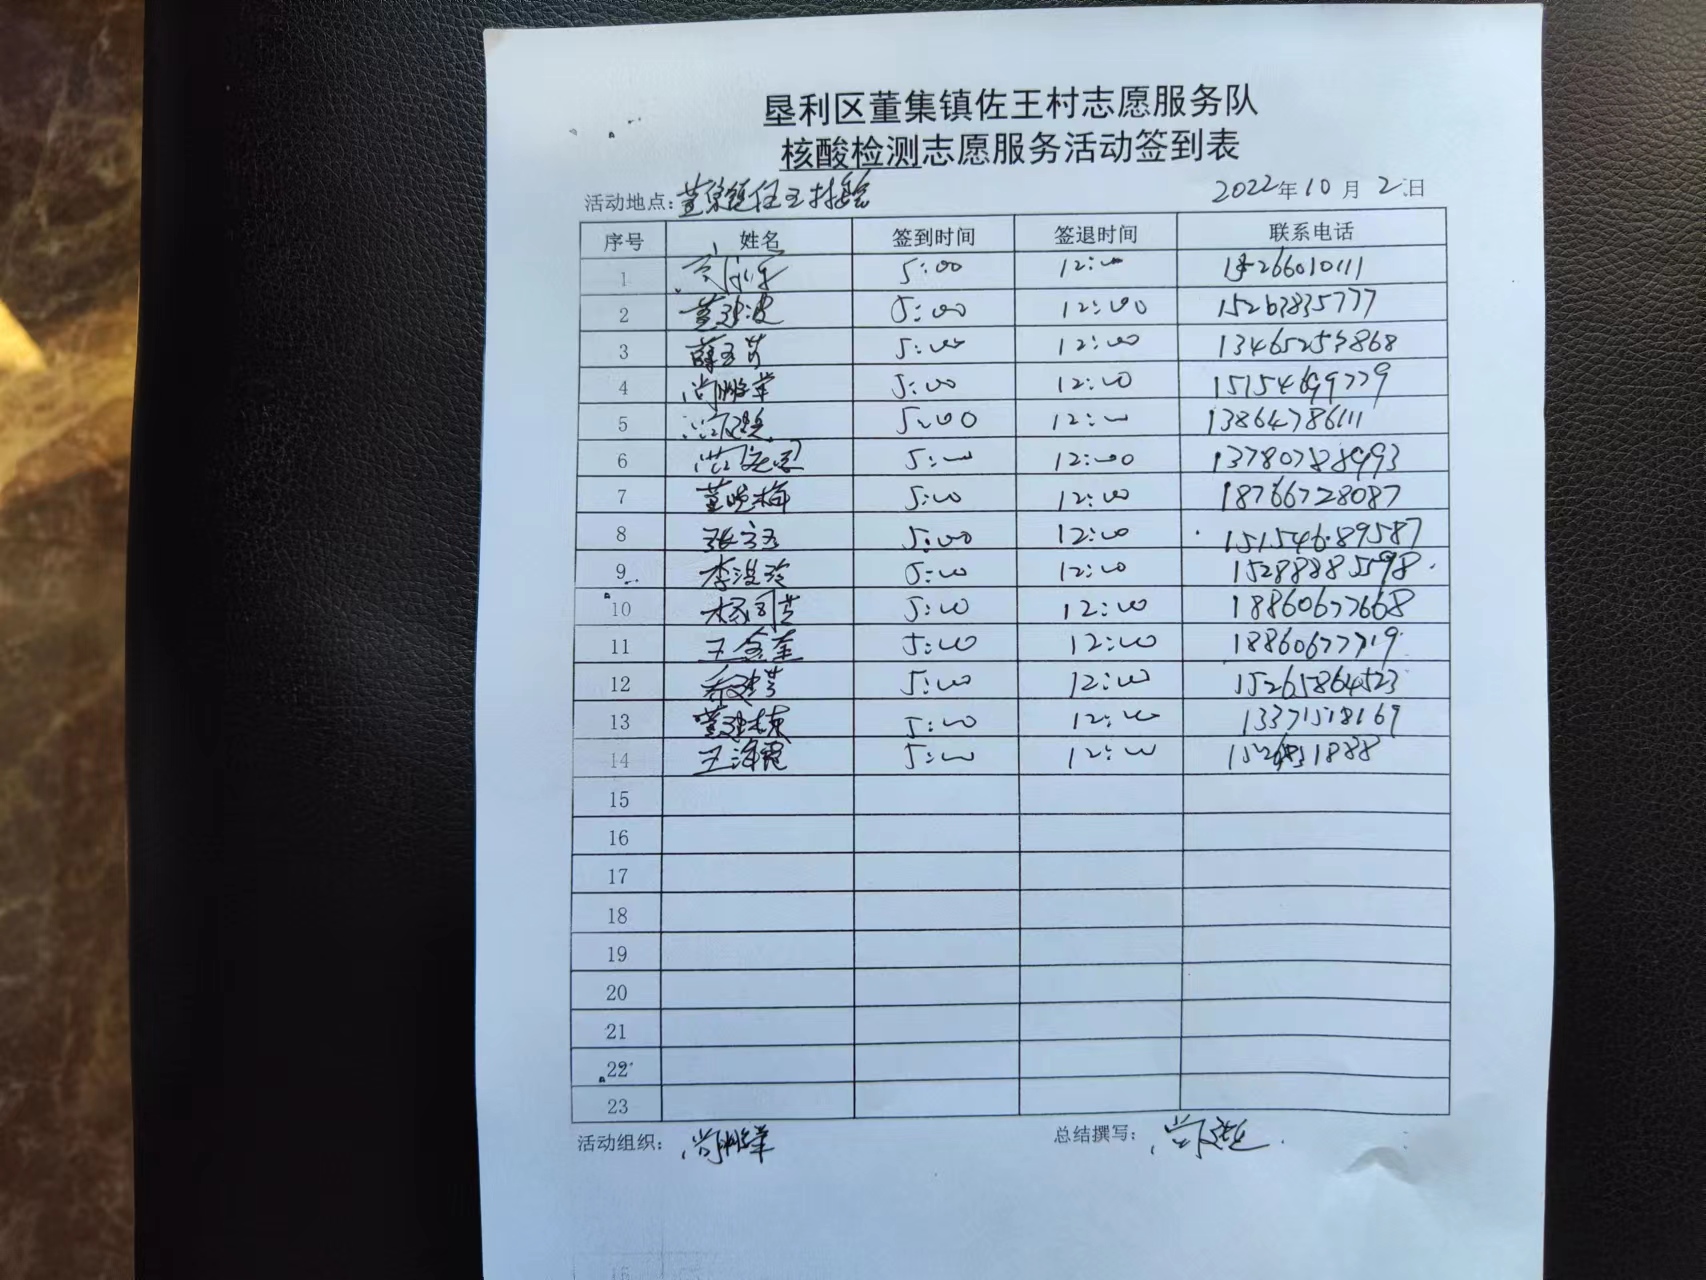 垦利区董集镇佐王村志愿服务队
核酸检测志愿服务活动签到表
活动地点: 董集镇佐王村 2022年10月2日
序号 姓名 签到时间 签退时间 联系电话
1 5:00 12:00 15266010111
2 董建波 5:00 12:00 15263835777
3 薛玉芳 5:00 12:00 13465253868
4 尚鹏华 5:00 12:00 15154699779
5 5:00 12:00 13864786111
6 5:00 12:00 13780788993
7 董晓梅 5:00 12:00 18766728087
8 5:00 12:00 15154689587
9 5:00 12:00 15288885598
10 5:00 12:00 18860677668
11 王金奎 5:00 12:00 18860677719
12 5:00 12:00 15265864523
13 董建栋 5:00 12:00 13371518169
14 王海霞 5:00 12:00
15
16
17
18
19
20
21
22
23
活动组织: 尚鹏华 总结撰写: